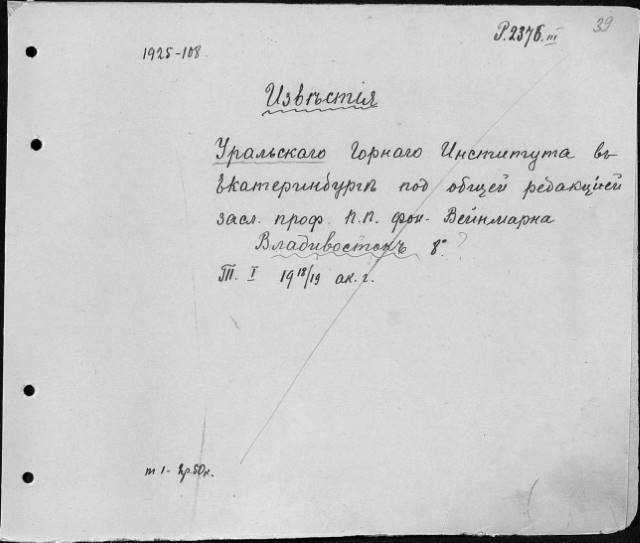 39
P.2376.III
1925-108
Извѣстія
Уральскаго Горнаго Института въ
Екатеринбургѣ под общей редакціей
засл. проф. П.П. фон-Веймарна
Владивостокъ 8° ?
Т. I 1918/19 ак. г.
т 1 - 2р.50к.